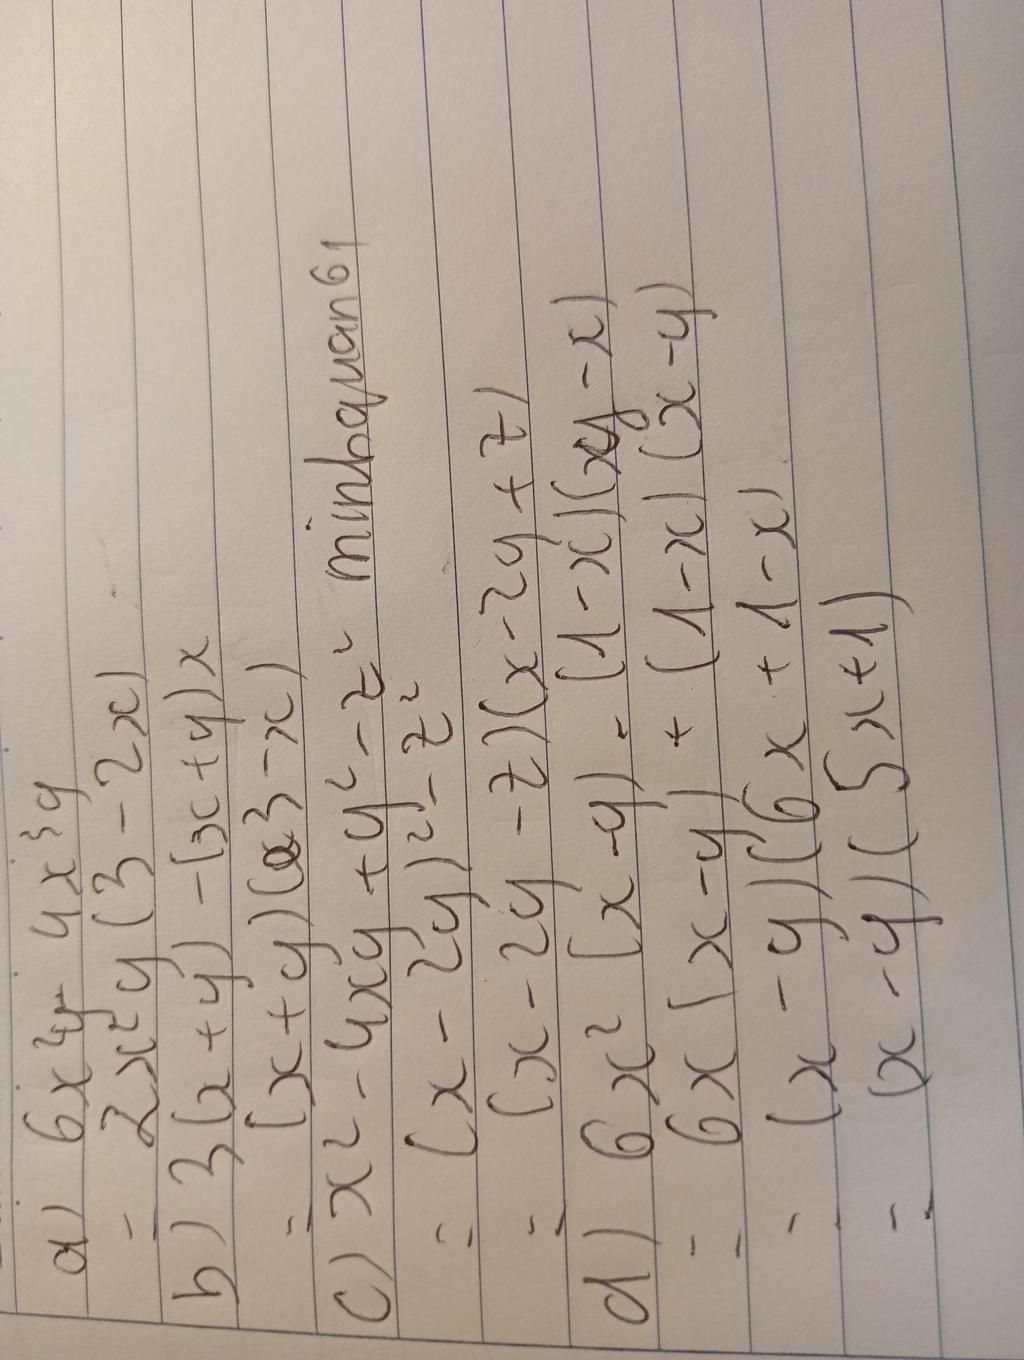 a) 6x²y - 4x³y
= 2x²y (3 - 2x)
b) 3(x+y) - (x+y)x
= (x+y)(3-x)
c) x² - 4xy + y² - z² minhquan61
= (x - 2y)² - z²
= (x - 2y - z)(x - 2y + z)
d) 6x² (x-y) - (1-x)(y-x)
= 6x (x-y) + (1-x)(x-y)
= (x - y)(6x + 1 - x)
= (x - y)(5x+1)